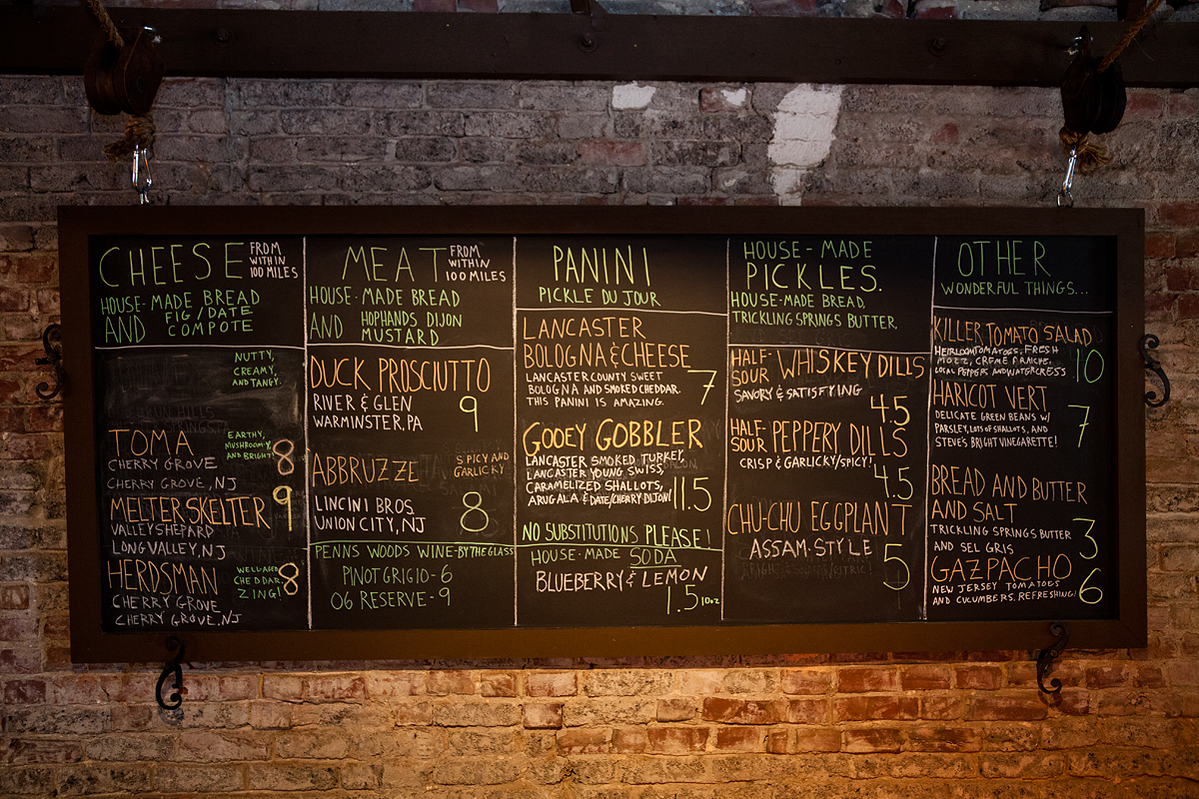 CHEESE FROM
WITHIN
100 MILES
HOUSE-MADE BREAD
AND FIG/DATE
COMPOTE
NUTTY,
CREAMY,
AND TANGY.
TOMA
EARTHY,
MUSHROOMY
AND BRIGHT!
8
CHERRY GROVE
CHERRY GROVE, NJ
MELTER SKELTER 9
VALLEY SHEPARD
LONG VALLEY, NJ
HERDSMAN
WELL AGED
CHEDDAR
ZING!
8
CHERRY GROVE
CHERRY GROVE, NJ
MEAT FROM
WITHIN
100 MILES
HOUSE-MADE BREAD
AND HOPHANDS DIJON
MUSTARD
DUCK PROSCIUTTO
RIVER & GLEN
WARMINSTER, PA
9
ABBRUZZE
SPICY AND
GARLICKY
LINCINI BROS.
UNION CITY, NJ
8
PENNS WOODS WINE-BY THE GLASS
PINOT GRIGIO-6
06 RESERVE-9
PANINI
PICKLE DU JOUR
LANCASTER
BOLOGNA & CHEESE
LANCASTER COUNTY SWEET
BOLOGNA AND SMOKED CHEDDAR.
THIS PANINI IS AMAZING.
7
GOOEY GOBBLER
LANCASTER SMOKED TURKEY,
LANCASTER YOUNG SWISS,
CARAMELIZED SHALLOTS,
ARUGALA & DATE/CHERRY DIJON!
11.5
NO SUBSTITUTIONS PLEASE!
HOUSE-MADE SODA
BLUEBERRY & LEMON
1.5 10oz
HOUSE-MADE
PICKLES.
HOUSE-MADE BREAD,
TRICKLING SPRINGS BUTTER.
HALF-
SOUR WHISKEY DILLS
SAVORY & SATISFYING
4.5
HALF-
SOUR PEPPERY DILLS
CRISP & GARLICKY/SPICY!
4.5
CHU-CHU EGGPLANT
ASSAM-STYLE
5
OTHER
WONDERFUL THINGS...
KILLER TOMATO SALAD
HEIRLOOM TOMATOES, FRESH
MOZZ, CREME FRAICHE,
LOCAL PEPPERS AND WATERCRESS
10
HARICOT VERT
DELICATE GREEN BEANS W/
PARSLEY, LOTS OF SHALLOTS, AND
STEVE'S BRIGHT VINEGARETTE!
7
BREAD AND BUTTER
AND SALT
TRICKLING SPRINGS BUTTER
AND SEL GRIS
3
GAZPACHO
NEW JERSEY TOMATOES
AND CUCUMBERS. REFRESHING!
6